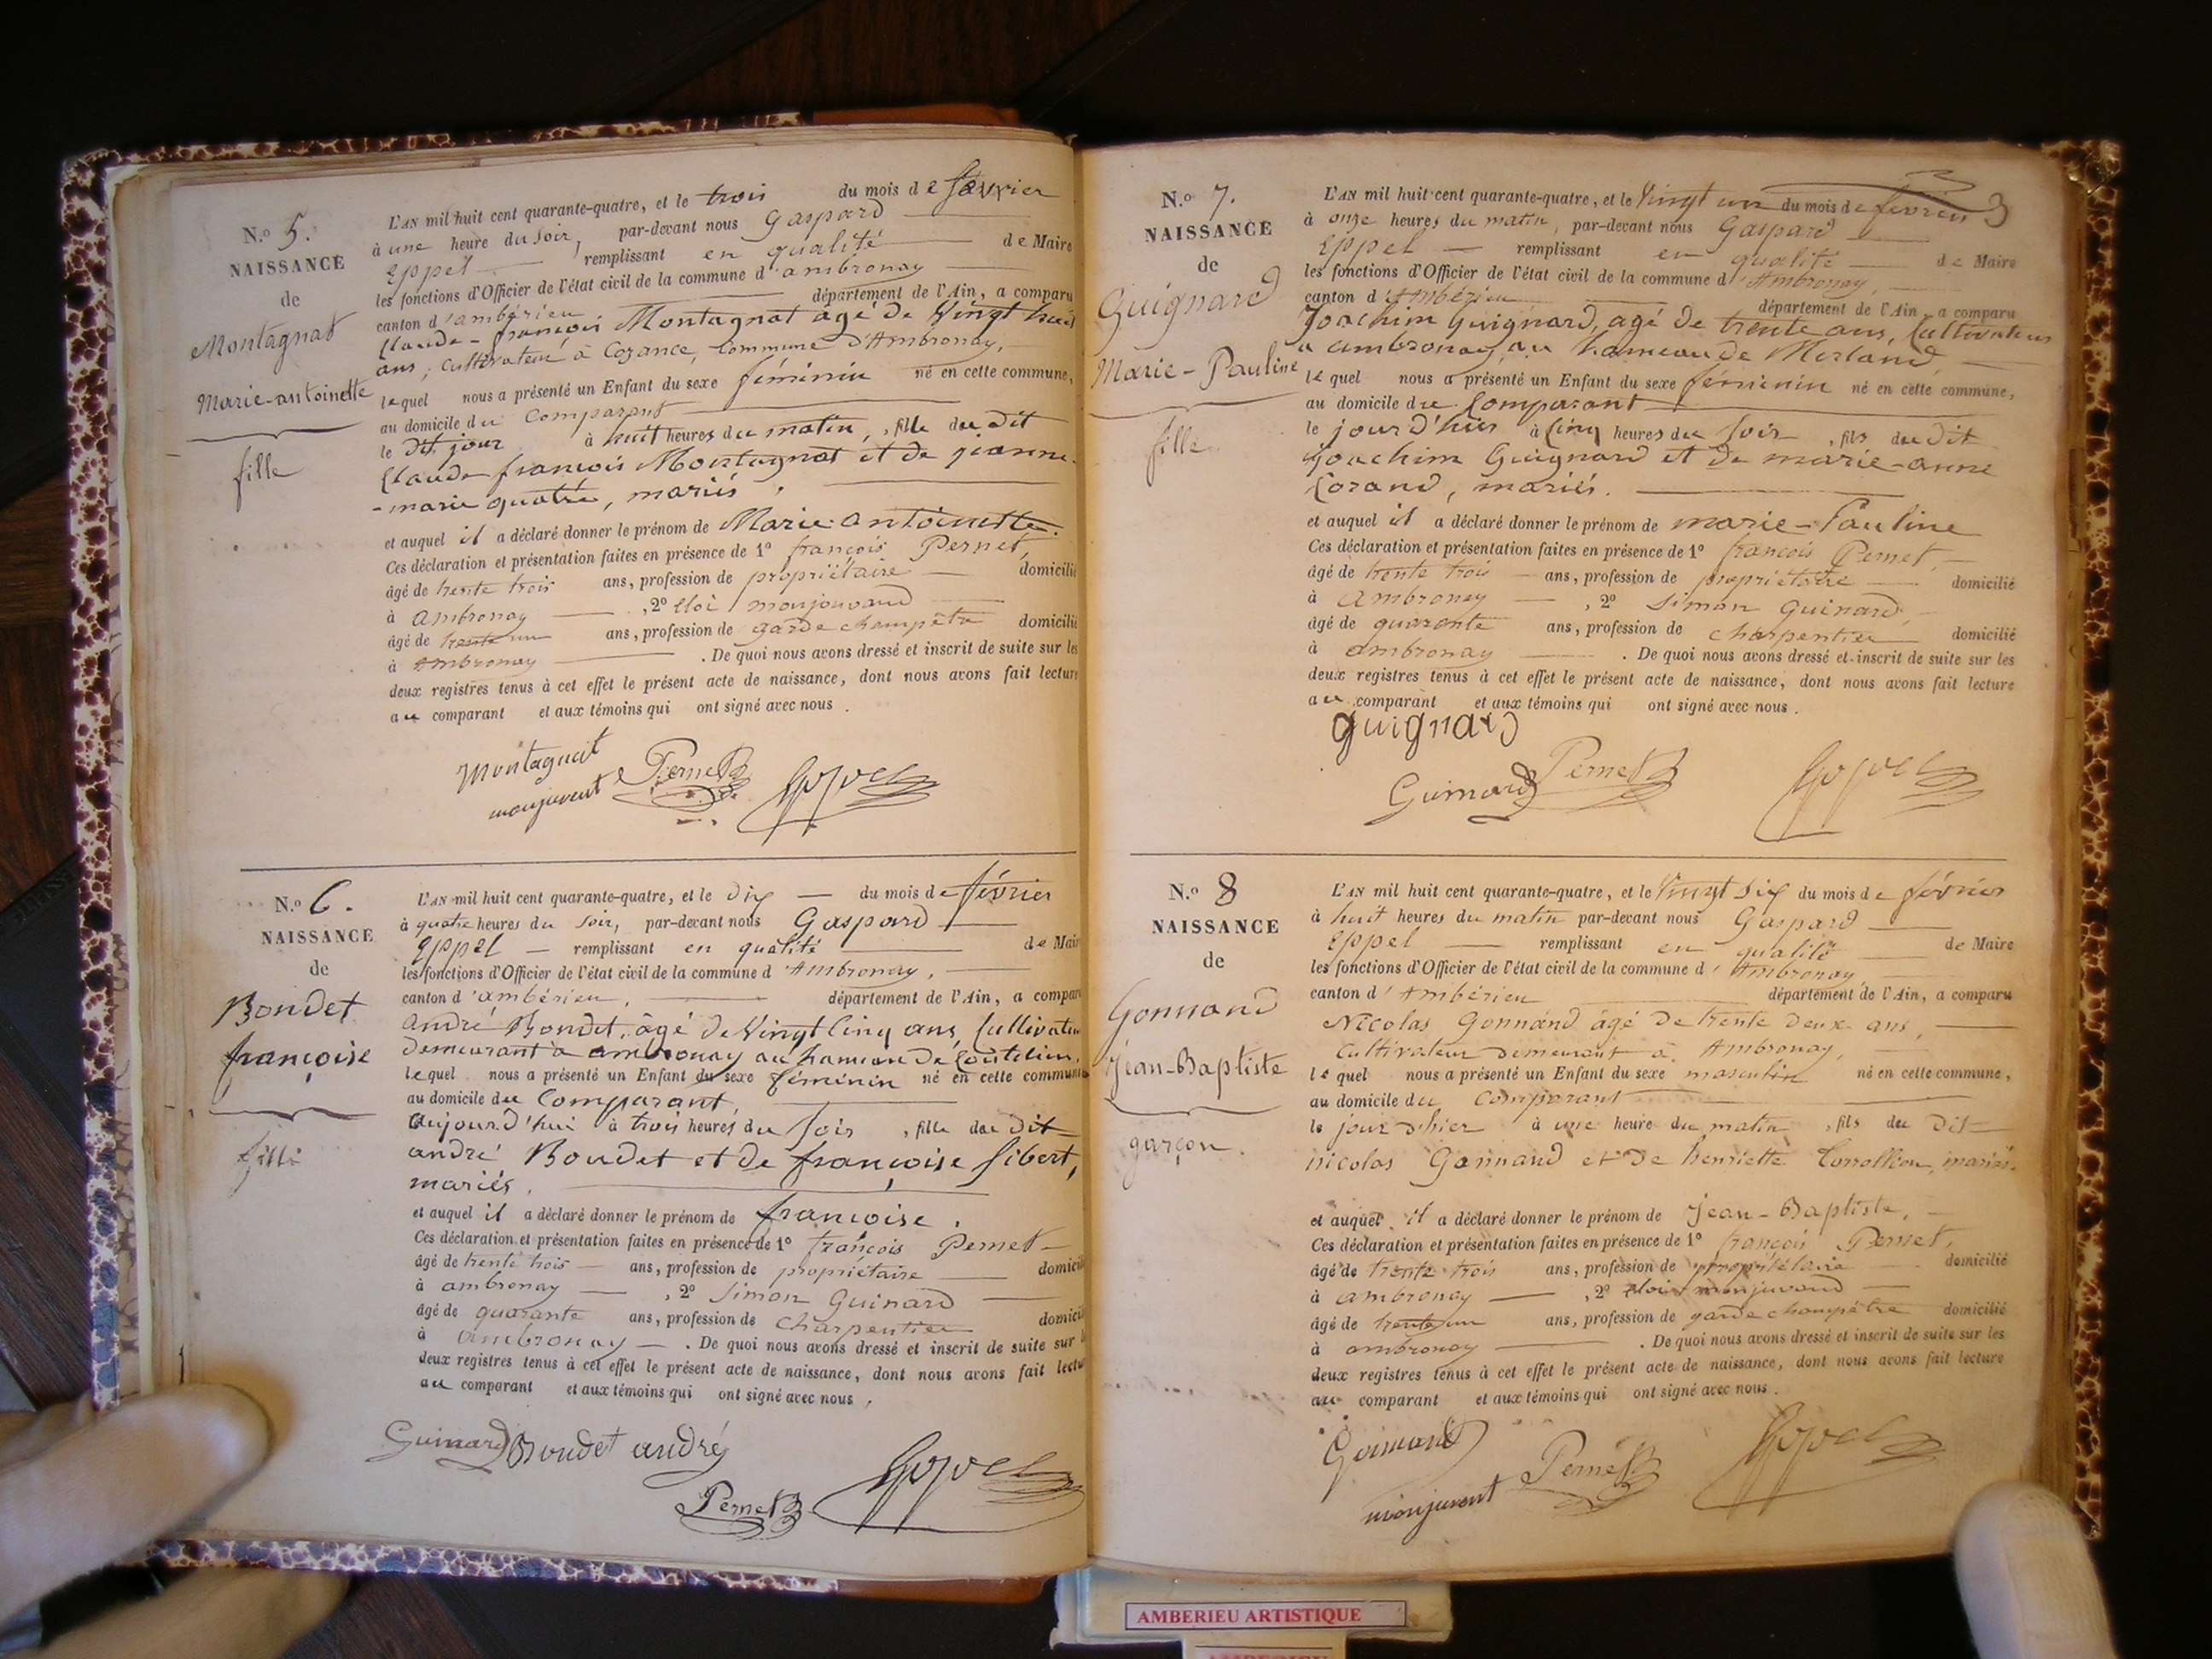 N.o 5.
NAISSANCE
de
Montagnat
Marie-antoinette
fille
L'AN mil huit cent quarante-quatre, et le trois du mois de février
à une heure du soir, par-devant nous Gaspard
Eppel remplissant en qualité de Maire
les fonctions d'Officier de l'état civil de la commune d'ambronay
canton d'ambérieu département de l'Ain, a comparu
Claude-françois Montagnat agé de Vingt huit
ans, cultivateur à Cozance, commune d'Ambronay,
lequel nous a présenté un Enfant du sexe féminin né en cette commune,
au domicile du Comparant
le dit jour à huit heures du matin, fille du dit
Claude françois Montagnat et de jeanne
-marie quatré, mariés.
et auquel il a déclaré donner le prénom de Marie-antoinette.
Ces déclaration et présentation faites en présence de 1o françois Pernet,
âgé de trente trois ans, profession de propriétaire domicilié
à Ambronay, 2o Eloi monjouvand
âgé de trente un ans, profession de garde champêtre domicilié
à Ambronay. De quoi nous avons dressé et inscrit de suite sur les
deux registres tenus à cet effet le présent acte de naissance, dont nous avons fait lecture
au comparant et aux témoins qui ont signé avec nous.
Montagnat
monjuvent Pernet
N.o 6.
NAISSANCE
de
Boudet
françoise
fille
L'AN mil huit cent quarante-quatre, et le dix du mois de février
à quatre heures du soir, par-devant nous Gaspard
Eppel remplissant en qualité de Maire
les fonctions d'Officier de l'état civil de la commune d'Ambronay,
canton d'ambérieu, département de l'Ain, a comparu
andré Boudet, âgé de Vingt cinq ans, Cultivateur
demeurant à ambronay au hameau de
lequel nous a présenté un Enfant du sexe féminin né en cette commune
au domicile du Comparant,
aujourd'hui à trois heures du soir, fille du dit
andré Boudet et de françoise sibert,
mariés.
et auquel il a déclaré donner le prénom de françoise.
Ces déclaration et présentation faites en présence de 1o françois Pernet
âgé de trente trois ans, profession de propriétaire domicilié
à ambronay, 2o Simon Guinard
âgé de quarante ans, profession de Charpentier domicilié
à Ambronay. De quoi nous avons dressé et inscrit de suite sur les
deux registres tenus à cet effet le présent acte de naissance, dont nous avons fait lecture
au comparant et aux témoins qui ont signé avec nous.
Guinard Boudet andré
Pernet
N.o 7.
NAISSANCE
de
Guignard
Marie-Pauline
fille
L'AN mil huit cent quarante-quatre, et le Vingt un du mois de février
à onze heures du matin, par-devant nous Gaspard
Eppel remplissant en qualité de Maire
les fonctions d'Officier de l'état civil de la commune d'Ambronay,
canton d'Ambérieu département de l'Ain, a comparu
Joachim Guignard, agé de trente ans, Cultivateur
a ambronay au hameau de Merland,
lequel nous a présenté un Enfant du sexe féminin né en cette commune,
au domicile du Comparant
le jour d'hier à Cinq heures du soir, fils du dit
joachim Guignard et de marie-anne
Corand, mariés.
et auquel il a déclaré donner le prénom de marie-Pauline
Ces déclaration et présentation faites en présence de 1o françois Pernet,
âgé de trente trois ans, profession de propriétaire domicilié
à Ambronay, 2o Simon Guinard,
âgé de quarante ans, profession de charpentier domicilié
à ambronay. De quoi nous avons dressé et inscrit de suite sur les
deux registres tenus à cet effet le présent acte de naissance, dont nous avons fait lecture
au comparant et aux témoins qui ont signé avec nous.
guignard
Guinard Pernet
N.o 8
NAISSANCE
de
Gonnand
Jean-Baptiste
garçon.
L'AN mil huit cent quarante-quatre, et le Vingt six du mois de février
à huit heures du matin par-devant nous Gaspard
Eppel remplissant en qualité de Maire
les fonctions d'Officier de l'état civil de la commune d'Ambronay
canton d'Ambérieu département de l'Ain, a comparu
Nicolas Gonnand âgé de trente deux ans,
Cultivateur demeurant à Ambronay,
lequel nous a présenté un Enfant du sexe masculin né en cette commune,
au domicile du Comparant
le jour d'hier à une heure du matin, fils du dit
nicolas Gonnand et de henriette mariés.
et auquel il a déclaré donner le prénom de Jean-Baptiste,
Ces déclaration et présentation faites en présence de 1o françois Pernet,
âgé de trente trois ans, profession de propriétaire domicilié
à ambronay, 2o eloi monjuvand
âgé de trente un ans, profession de garde champêtre domicilié
à ambronay. De quoi nous avons dressé et inscrit de suite sur les
deux registres tenus à cet effet le présent acte de naissance, dont nous avons fait lecture
au comparant et aux témoins qui ont signé avec nous.
monjuvent Pernet
AMBERIEU ARTISTIQUE